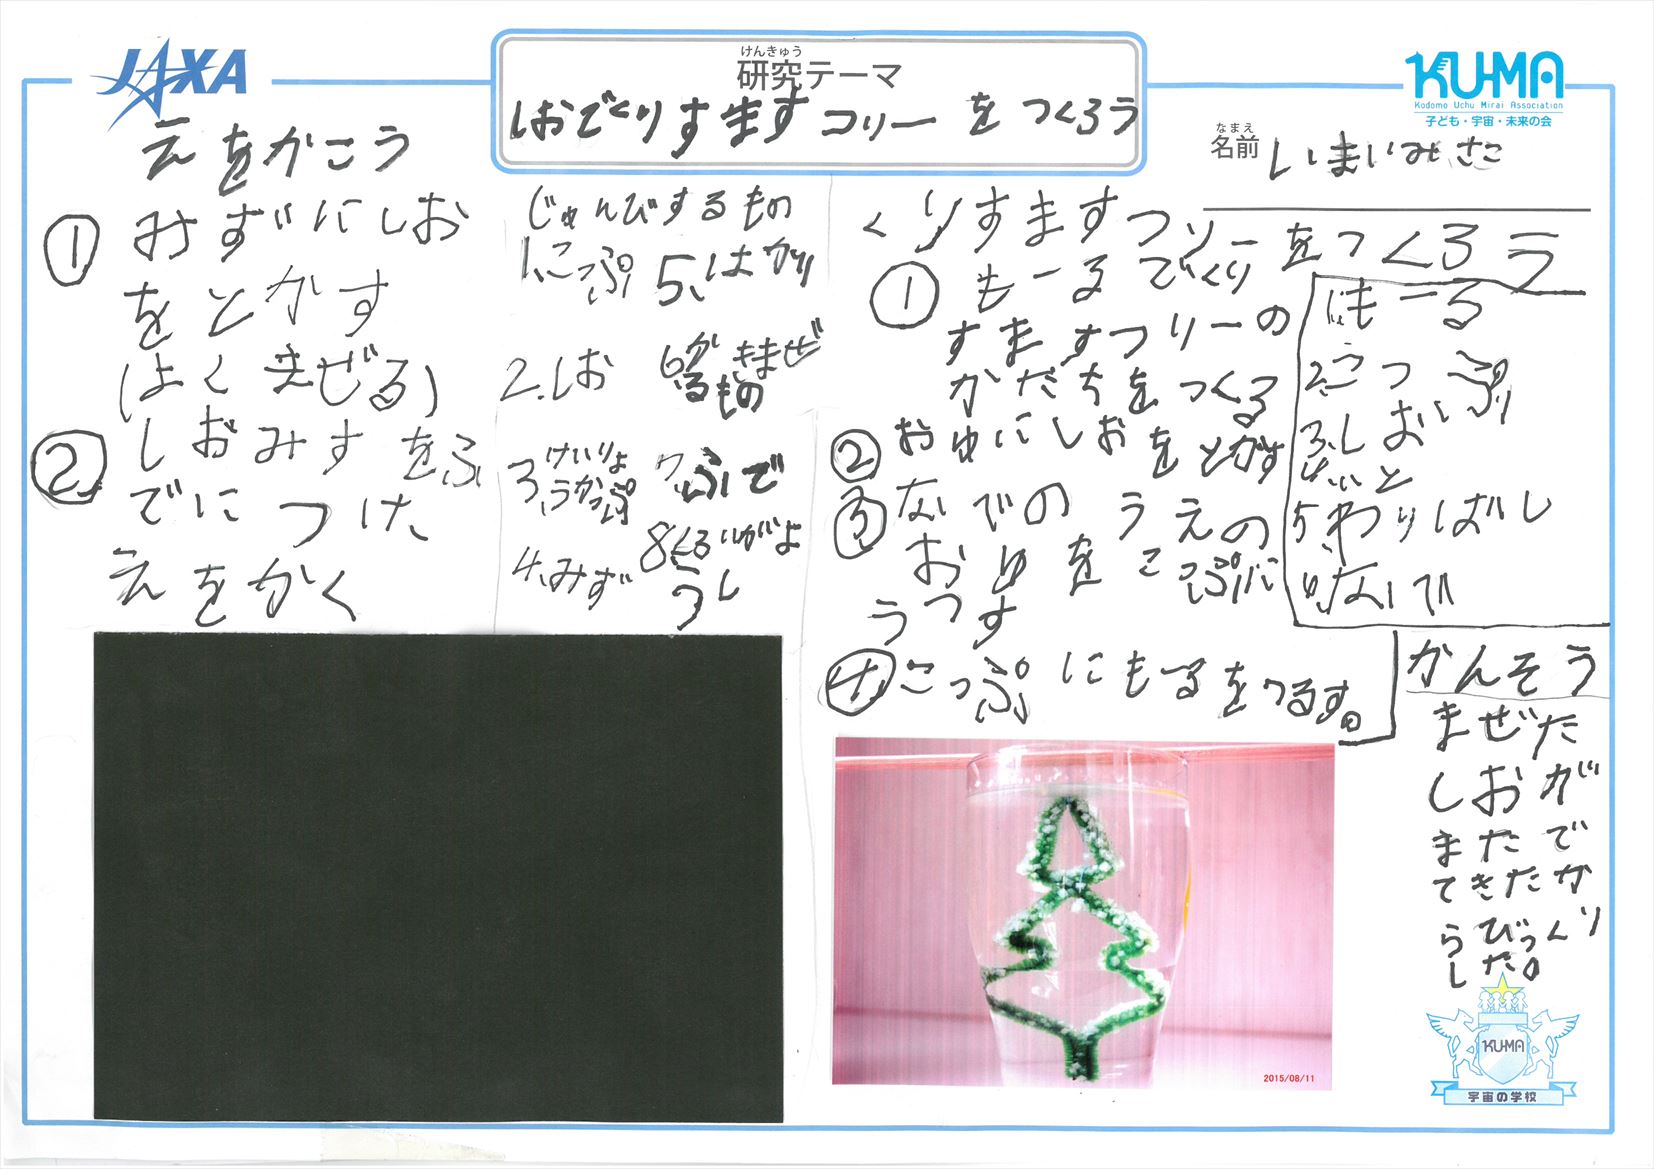 JAXA
けんきゅう
研究テーマ
しおでくりすますつリーをつくろう
KU-MA
Kodomo Uchu Mirai Association
子ども・宇宙・未来の会
なまえ
名前
いまいみさこ
えをかこう
① みずにしお
をとかす
(よくまぜる)
② しおみずをふ
でにつけた
えをかく
じゅんびするもの
1.こっぷ
2.しお
3.けいりょ
うかっぷ
4.みず
5.はかり
6.かきまぜ
るもの
7.ふで
8.くろいがよ
うし
くりすますつりーをつくろう
① もーるでくり
すますつリーの
かたちをつくる
② おゆにしおをとかす
③ なべのうえの
おゆをこっぷに
うつす
④ こっぷにもーるをつるす。
1.もーる
2.こっぷ
3.しお
いと
5.わりばし
なべ
かんそう
まぜた
しおが
またで
てきたか
らびっくり
した。
2015/08/11
KU-MA
宇宙の学校